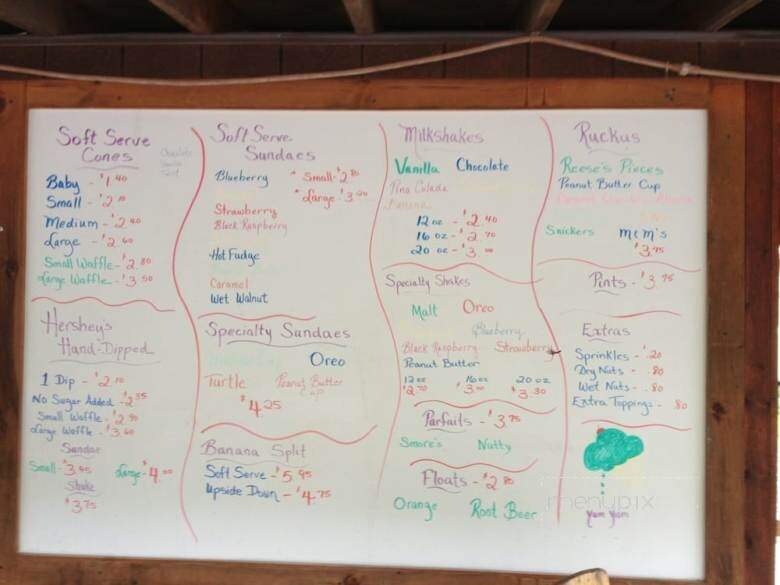 Soft Serve
Cones
Chocolate
Vanilla
Twist
Baby - $1.40
Small -
Medium - $2.40
Large - $2.60
Small Waffle - $2.80
Large Waffle - $3.50
Hershey's
Hand-Dipped
1 Dip -
No Sugar Added -
Small Waffle -
Large Waffle -
Sundae
Small - Large $4.00
Shake
$3.75
Soft Serve
Sundaes
Blueberry * Small -
* Large -
Strawberry
Black Raspberry
Hot Fudge
Caramel
Wet Walnut
Specialty Sundaes
Oreo
Turtle Peanut Butter
Cup
$4.25
Banana Split
Soft Serve - $5.95
Upside Down - $4.75
Milkshakes
Vanilla Chocolate
Pina Colada
Banana
12 oz - $2.40
16 oz - $2.70
20 oz - $3.00
Specialty Shakes
Malt Oreo
Blueberry
Black Raspberry Strawberry
Peanut Butter
12 oz 16 oz 20 oz
$2.70 $3.00 $3.30
Parfaits - $3.75
Smore's Nutty
Floats - $2.80
Orange Root Beer
Ruckus
Reese's Pieces
Peanut Butter Cup
Snickers M&M's
$3.75
Pints - $3.75
Extras
Sprinkles - .20
Dry Nuts - .80
Wet Nuts - .80
Extra Toppings - .80
menupix
Yum Yum